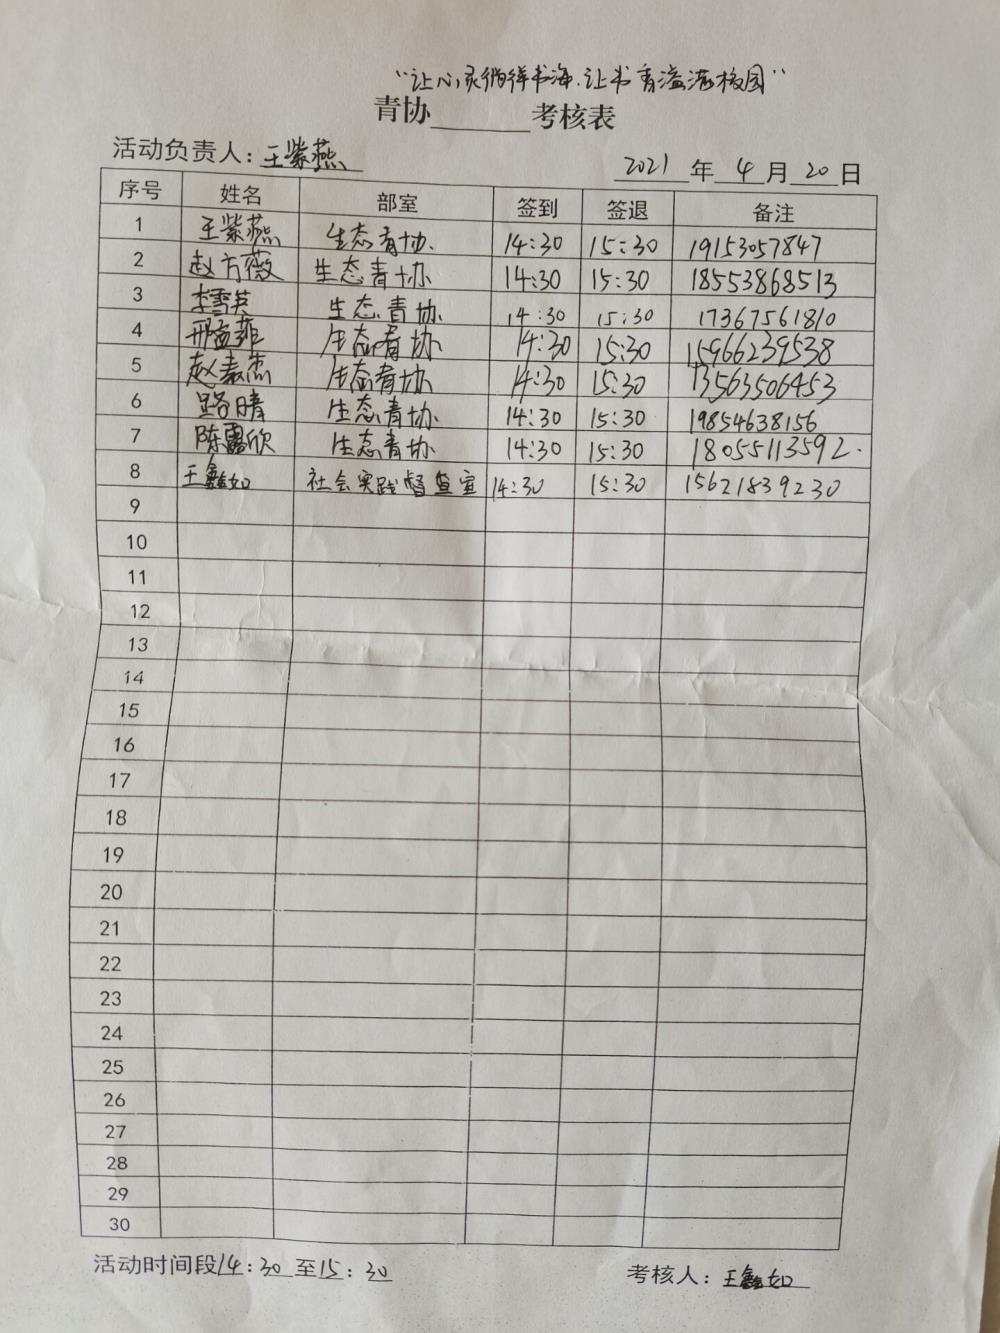 “让心灵徜徉书海.让书香溢满校园”
青协______考核表
活动负责人：王紫燕 2021年4月20日
序号 姓名 部室 签到 签退 备注
1 王紫燕 生态青协. 14:30 15:30 19153057847
2 赵方薇 生态青协 14:30 15:30 18553868513
3 李雪英 生态青协 14:30 15:30 17367561810
4 邢孟菲 生态青协 14:30 15:30 15966239538
5 赵素杰 生态青协 14:30 15:30 13563506453
6 路晴 生态青协 14:30 15:30 19854638156
7 陈露欣 生态青协 14:30 15:30 18055113592.
8 王鑫如 社会实践督查室 14:30 15:30 15621839230
9
10
11
12
13
14
15
16
17
18
19
20
21
22
23
24
25
26
27
28
29
30
活动时间段14:30至15:30 考核人：王鑫如